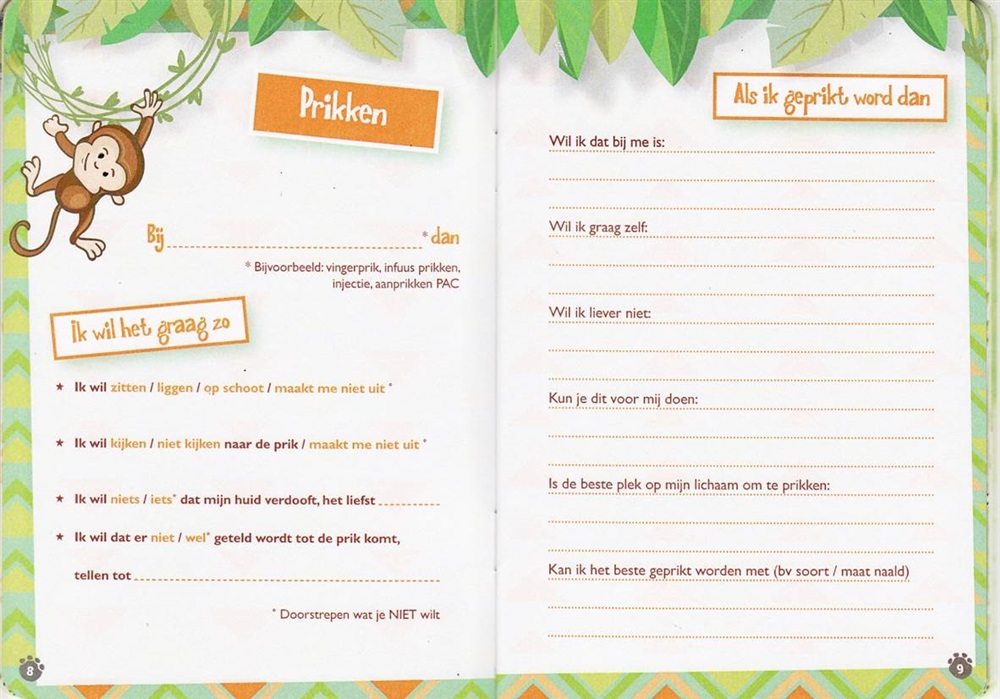 Prikken
Bij * dan
* Bijvoorbeeld: vingerprik, infuus prikken,
injectie, aanprikken PAC
Ik wil het graag zo
★ Ik wil zitten / liggen / op schoot / maakt me niet uit *
★ Ik wil kijken / niet kijken naar de prik / maakt me niet uit *
★ Ik wil niets / iets* dat mijn huid verdooft, het liefst
★ Ik wil dat er niet / wel* geteld wordt tot de prik komt,
tellen tot
* Doorstrepen wat je NIET wilt
8
Als ik geprikt word dan
Wil ik dat bij me is:
Wil ik graag zelf:
Wil ik liever niet:
Kun je dit voor mij doen:
Is de beste plek op mijn lichaam om te prikken:
Kan ik het beste geprikt worden met (bv soort / maat naald)
9